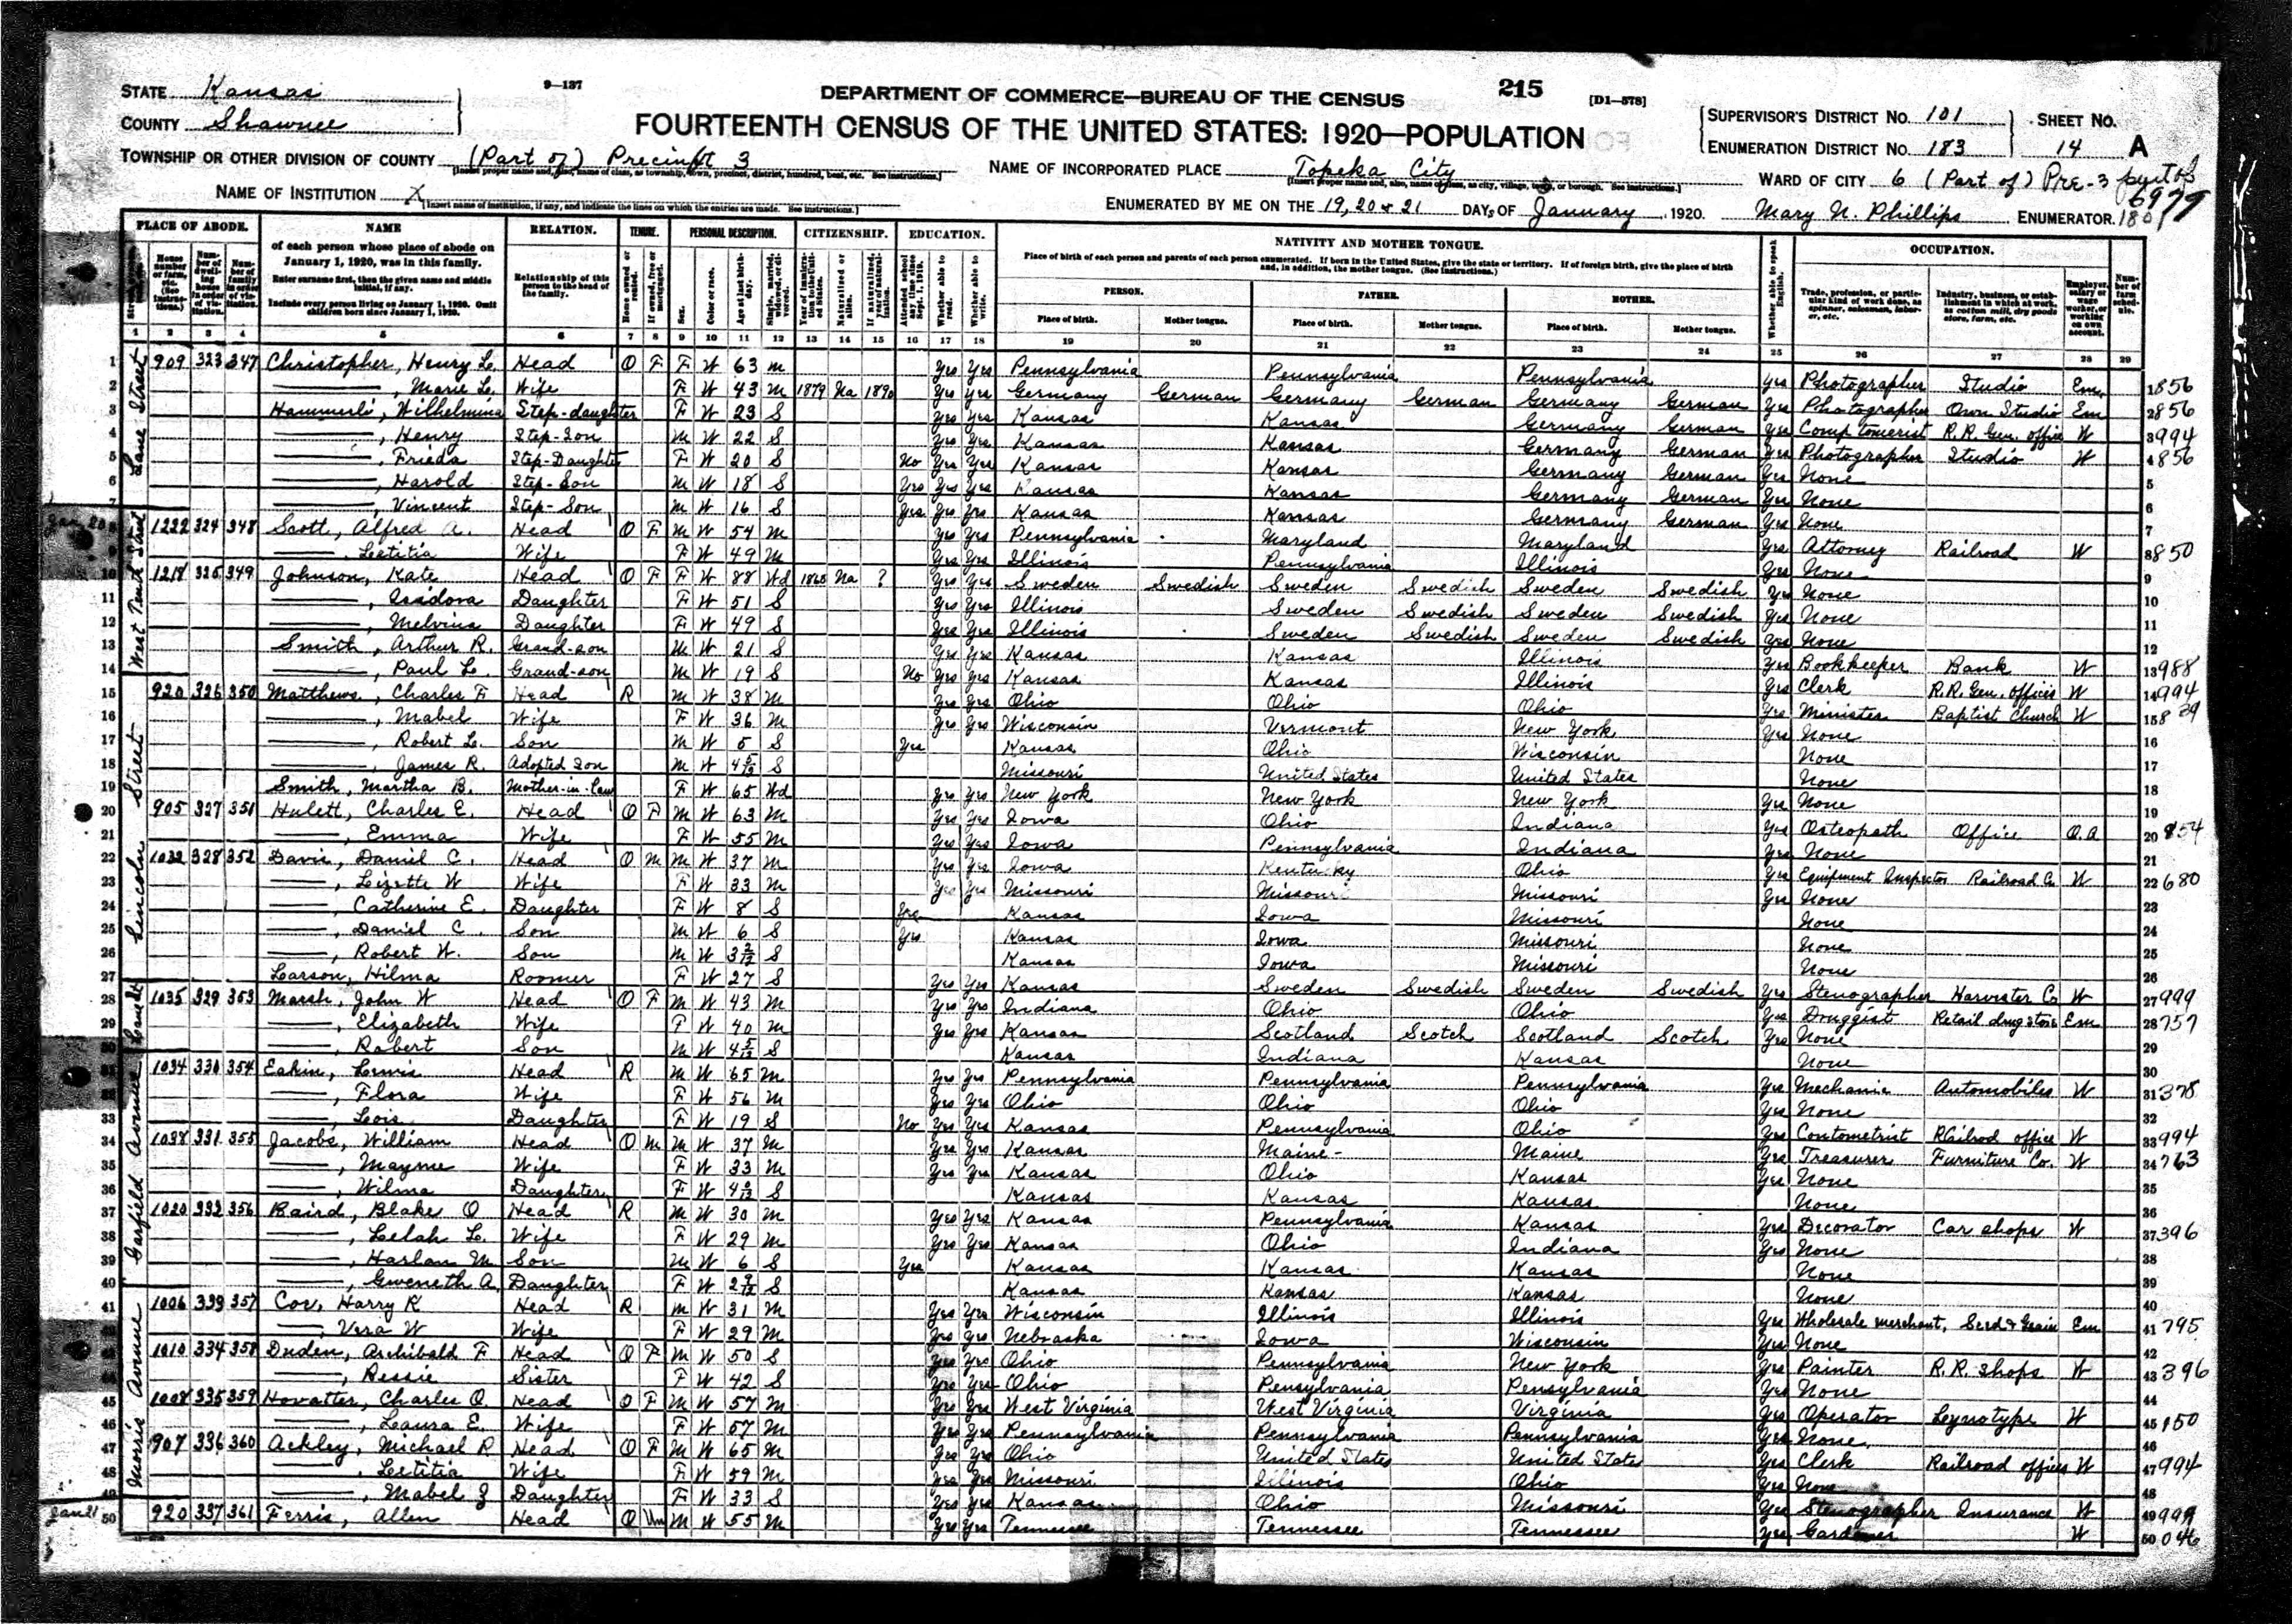 STATE Kansas
9—137
DEPARTMENT OF COMMERCE—BUREAU OF THE CENSUS
215
[D1—578]
COUNTY Shawnee
FOURTEENTH CENSUS OF THE UNITED STATES: 1920—POPULATION
SUPERVISOR'S DISTRICT No. 101 SHEET No.
ENUMERATION DISTRICT No. 183 14 A
TOWNSHIP OR OTHER DIVISION OF COUNTY (Part of) Precinct 3
NAME OF INCORPORATED PLACE Topeka City
WARD OF CITY 6 (Part of) Pre-3
NAME OF INSTITUTION X
ENUMERATED BY ME ON THE 19, 20 & 21 DAYS OF January, 1920. Mary N. Phillips ENUMERATOR.
PLACE OF ABODE. NAME RELATION. TENURE. PERSONAL DESCRIPTION. CITIZENSHIP. EDUCATION. NATIVITY AND MOTHER TONGUE. OCCUPATION.
of each person whose place of abode on January 1, 1920, was in this family.
Enter surname first, then the given name and middle initial, if any.
Include every person living on January 1, 1920. Omit children born since January 1, 1920.
Relationship of this person to the head of the family.
Place of birth of each person and parents of each person enumerated. If born in the United States, give the state or territory. If of foreign birth, give the place of birth and, in addition, the mother tongue. (See instructions.)
PERSON. FATHER. MOTHER.
Place of birth. Mother tongue. Place of birth. Mother tongue. Place of birth. Mother tongue.
1 2 3 4 5 6 7 8 9 10 11 12 13 14 15 16 17 18 19 20 21 22 23 24 25 26 27 28 29
Lane Street
1 909 323 347 Christopher, Henry L. Head O F F W 63 m Yes Yes Pennsylvania Pennsylvania Pennsylvania Yes Photographer Studio Em 1 856
2 ——, Marie L. Wife F W 43 M 1879 Na 1890 Yes Yes Germany German Germany German Germany German Yes Photographer Own Studio Em 2 856
3 Hammerli, Wilhelmina Step-daughter F W 23 S Yes Yes Kansas Kansas Germany German Yes Comptomerist R.R. Gen. office W 3 994
4 ——, Henry Step-Son M W 22 S Yes Yes Kansas Kansas Germany German Yes Photographer Studio W 4 856
5 ——, Frieda Step-Daughter F W 20 S No Yes Yes Kansas Kansas Germany German Yes None 5
6 ——, Harold Step-Son M W 18 S Yes Yes Yes Kansas Kansas Germany German Yes None 6
7 ——, Vincent Step-Son M W 16 S Yes Yes Yes Kansas Kansas Germany German Yes None 7
Jan 20
West Tenth Street
8 1222 324 348 Scott, Alfred A. Head O F M W 54 M Yes Yes Pennsylvania Maryland Maryland Yes Attorney Railroad W 8 850
9 ——, Letitia Wife F W 49 M Yes Yes Illinois Pennsylvania Illinois Yes None 9
10 1218 325 349 Johnson, Kate Head O F F W 88 Wd 1868 Na ? Yes Yes Sweden Swedish Sweden Swedish Sweden Swedish Yes None 10
11 ——, Isidora Daughter F W 51 S Yes Yes Illinois Sweden Swedish Sweden Swedish Yes None 11
12 ——, Melvina Daughter F W 49 S Yes Yes Illinois Sweden Swedish Sweden Swedish Yes None 12
13 Smith, Arthur R. Grand-son M W 21 S Yes Yes Kansas Kansas Illinois Yes Bookkeeper Bank W 13 988
14 ——, Paul L. Grand-son M W 19 S No Yes Yes Kansas Kansas Illinois Yes Clerk R.R. Gen. offices W 14 994
Lincoln Street
15 920 326 350 Matthews, Charles F Head R M W 38 M Yes Yes Ohio Ohio Ohio Yes Minister Baptist Church W 15 839
16 ——, Mabel Wife F W 36 M Yes Yes Wisconsin Vermont New York Yes None 16
17 ——, Robert L. Son M W 5 S Yes Kansas Ohio Wisconsin None 17
18 ——, James R. Adopted Son M W 4 5/12 S Missouri United States United States None 18
19 Smith, Martha B. Mother-in-law F W 65 Wd Yes Yes New York New York New York Yes None 19
20 905 327 351 Hulett, Charles E. Head O F M W 63 M Yes Yes Iowa Ohio Indiana Yes Osteopath Office O.A 20 854
21 ——, Emma Wife F W 55 M Yes Yes Iowa Pennsylvania Indiana Yes None 21
22 1032 328 352 Davis, Daniel C. Head O M M W 37 M Yes Yes Iowa Kentucky Ohio Yes Equipment Inspector Railroad Co W 22 680
23 ——, Lizette W Wife F W 33 M Yes Yes Missouri Missouri Missouri Yes None 23
24 ——, Catherine E. Daughter F W 8 S Yes Kansas Iowa Missouri None 24
25 ——, Daniel C. Son M W 6 S Yes Kansas Iowa Missouri None 25
26 ——, Robert W. Son M W 3 2/12 S Kansas Iowa Missouri None 26
27 Larson, Hilma Roomer F W 27 S Yes Yes Kansas Sweden Swedish Sweden Swedish Yes Stenographer Harvester Co W 27 999
28 1035 329 353 Marsh, John W Head O F M W 43 M Yes Yes Indiana Ohio Ohio Yes Druggist Retail drug store Em 28 757
29 ——, Elizabeth Wife F W 40 M Yes Yes Kansas Scotland Scotch Scotland Scotch Yes None 29
30 ——, Robert Son M W 4 5/12 S Kansas Indiana Kansas None 30
Garfield Avenue
31 1034 330 354 Eakin, Lewis Head R M W 65 M Yes Yes Pennsylvania Pennsylvania Pennsylvania Yes Mechanic Automobiles W 31 378
32 ——, Flora Wife F W 56 M Yes Yes Ohio Ohio Ohio Yes None 32
33 ——, Lois Daughter F W 19 S No Yes Yes Kansas Pennsylvania Ohio Yes Contometrist RRailrod office W 33 994
34 1038 331 355 Jacobs, William Head O M M W 37 M Yes Yes Kansas Maine Maine Yes Treasurer Furniture Co. W 34 763
35 ——, Mayme Wife F W 33 M Yes Yes Kansas Ohio Kansas Yes None 35
36 ——, Wilma Daughter F W S Kansas Kansas Kansas None 36
37 1020 332 356 Baird, Blake O Head R M W 30 M Yes Yes Kansas Pennsylvania Kansas Yes Decorator Car shops W 37 396
38 ——, Lelah L. Wife F W 29 M Yes Yes Kansas Ohio Indiana Yes None 38
39 ——, Harlan M Son M W 6 S Yes Kansas Kansas Kansas None 39
40 ——, Gweneth A. Daughter F W S Kansas Kansas Kansas None 40
Morris Avenue
41 1006 333 357 Cox, Harry R Head R M W 31 M Yes Yes Wisconsin Illinois Illinois Yes Wholesale merchant, Seed & Grain Em 41 795
42 ——, Vera W Wife F W 29 M Yes Yes Nebraska Iowa Wisconsin Yes None 42
43 1010 334 358 Duden, Archibald F Head O F M W 50 S Yes Yes Ohio Pennsylvania New York Yes Painter R.R. Shops W 43 396
44 ——, Bessie Sister F W 42 S Yes Yes Ohio Pensylvania Pensylvania Yes None 44
45 1008 335 359 Hovatter, Charles O. Head O F M W 57 M Yes Yes West Virginia West Virginia Virginia Yes Operator Lynotype W 45 150
46 ——, Laura E. Wife F W 57 M Yes Yes Pennsylvania Pennsylvania Pennsylvania Yes None 46
47 907 336 360 Ackley, Michael R Head O F M W 65 M Yes Yes Ohio United States United States Yes Clerk Railroad offices W 47 994
48 ——, Letitia Wife F W 59 M Yes Yes Missouri Illinois Ohio Yes None 48
49 ——, Mabel J Daughter F W 33 S Yes Yes Kansas Ohio Missouri Yes Stenographer Insurance W 49 999
Jan 21
50 920 337 361 Ferris, Allen Head O Un M W 55 M Yes Yes Tennessee Tennessee Tennessee Yes Gardener W 50 046